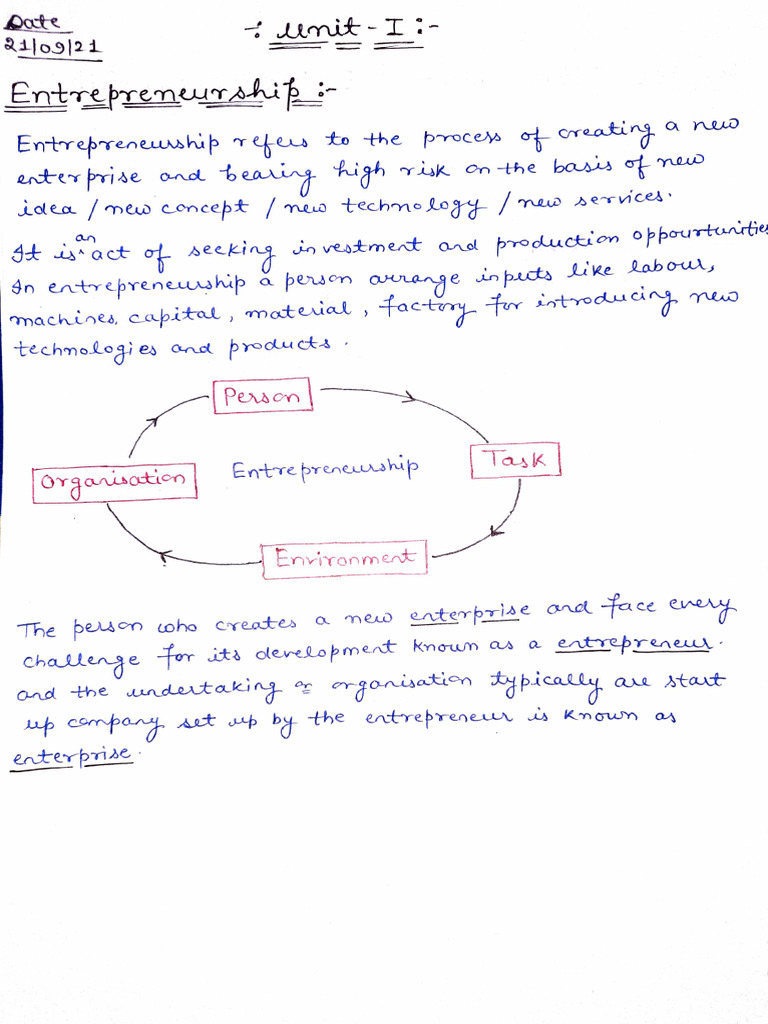 Date
21/09/21
-: Unit - I :-
Entrepreneurship :-
Entrepreneurship refers to the process of creating a new
enterprise and bearing high risk on the basis of new
idea / new concept / new technology / new services.
It is an act of seeking investment and production oppourtunities
In entrepreneurship a person arrange inputs like labour,
machines, capital, material, factory for introducing new
technologies and products.
Person
Task
Organisation
Entrepreneurship
Environment
The person who creates a new enterprise and face every
challenge for its development known as a entrepreneur.
and the undertaking or organisation typically are start
up company set up by the entrepreneur is known as
enterprise.